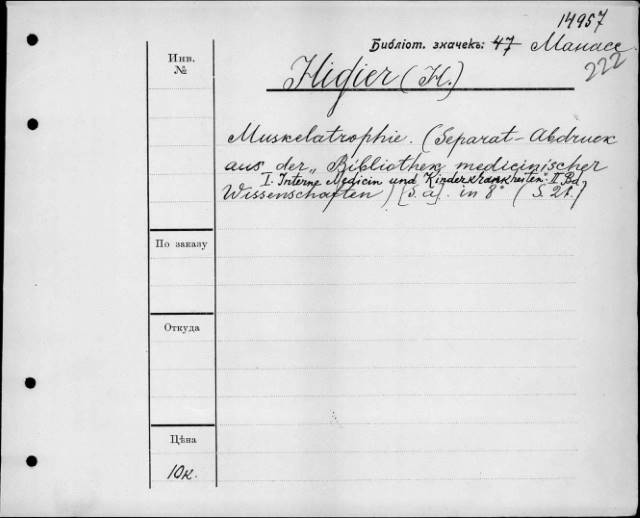 14957
Библіот. значекъ: 47 Манасс.
222
Инв.
№
Higier (H.)
Muskelatrophie. (Separat-Abdruck
aus der „Bibliothek medicinischer
I. Interne Medicin und Kinderkrankheiten". II Bd.
Wissenschaften) [s. a]. in 8° (S. 21.)
По заказу
Откуда
Цѣна
10к.